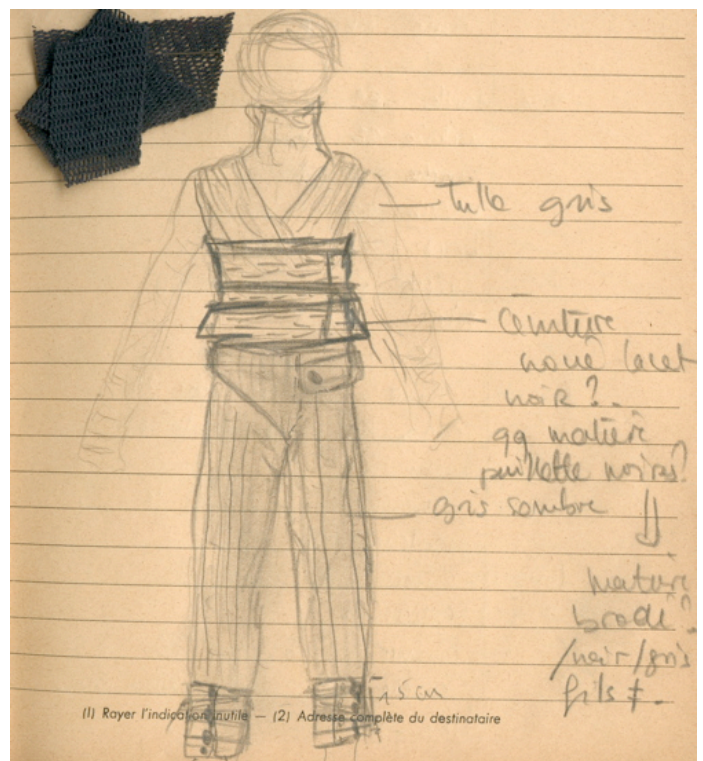 Tulle gris
Ceinture
noué lacet
noir ?..
qq matière
paillette noires?
gris sombre
matière
brodé ?
/noir/gris
fils ≠.
15 cm
(1) Rayer l'indication inutile — (2) Adresse complète du destinataire